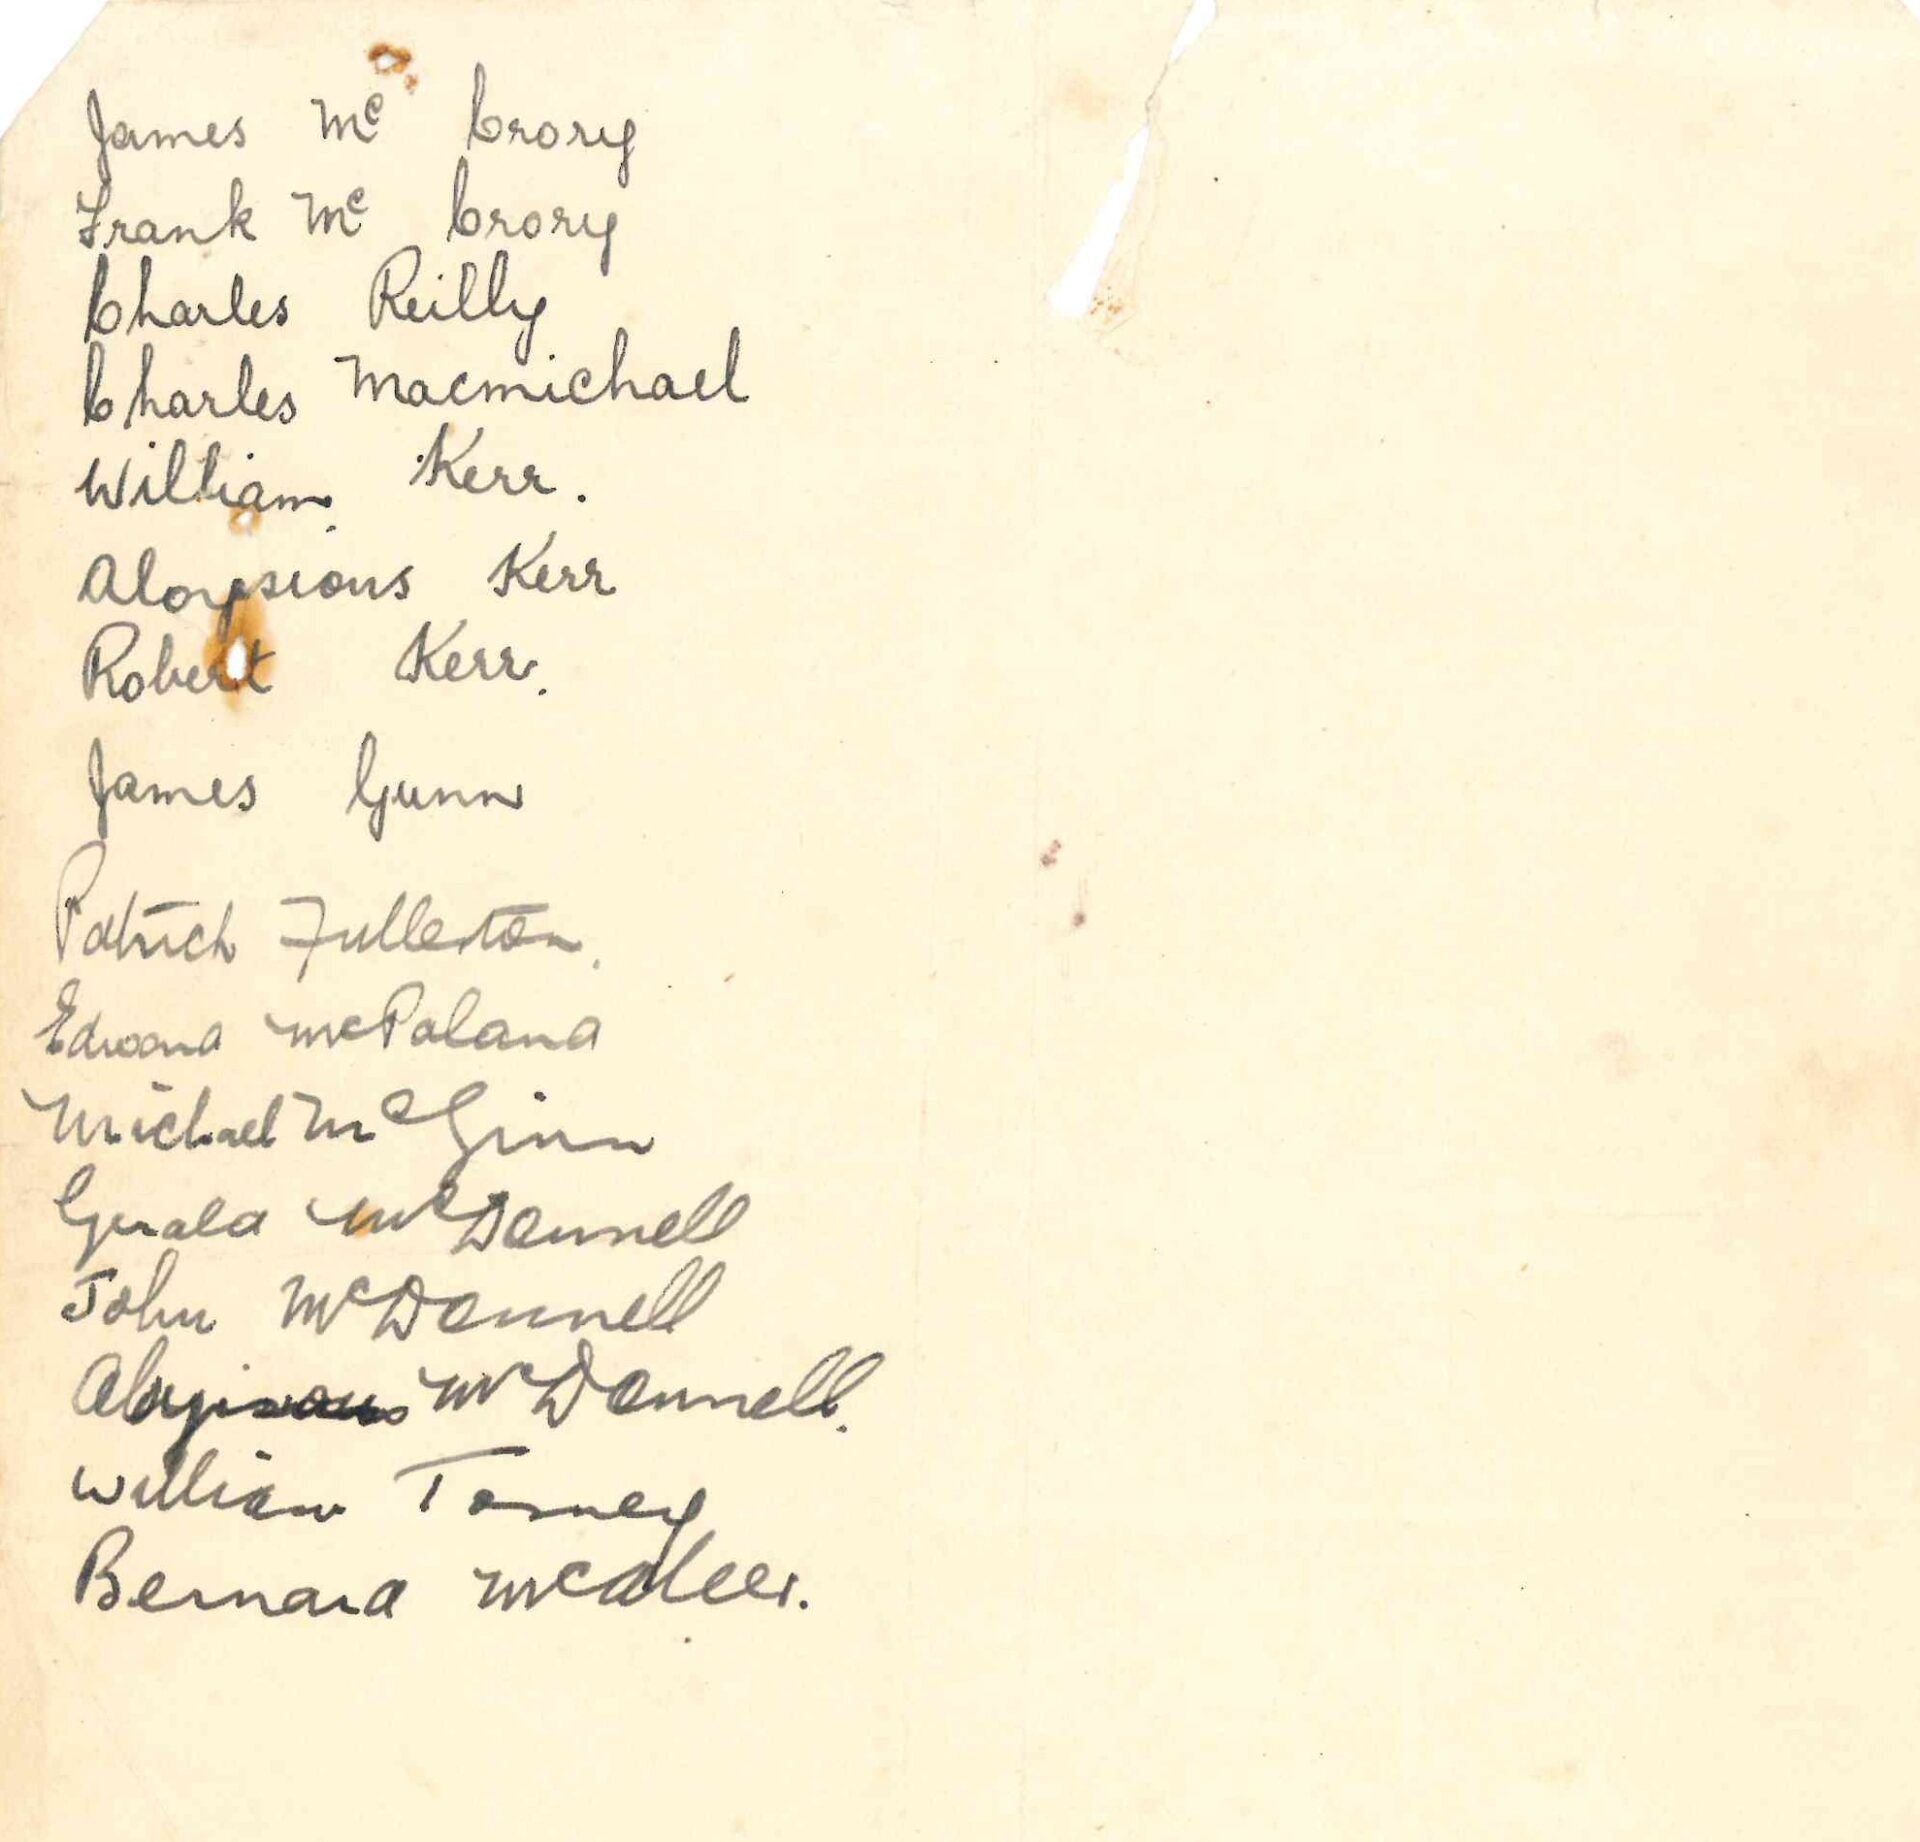 James Mc Crory
Frank Mc Crory
Charles Reilly
Charles Macmichael
William Kerr.
Aloysious Kerr
Robert Kerr.
James Gunn
Patrick Fullerton.
Edward McPoland
Michael McGinn
Gerald McDonnell
John McDonnell
McDonnell.
William Torney
Bernard McAleer.